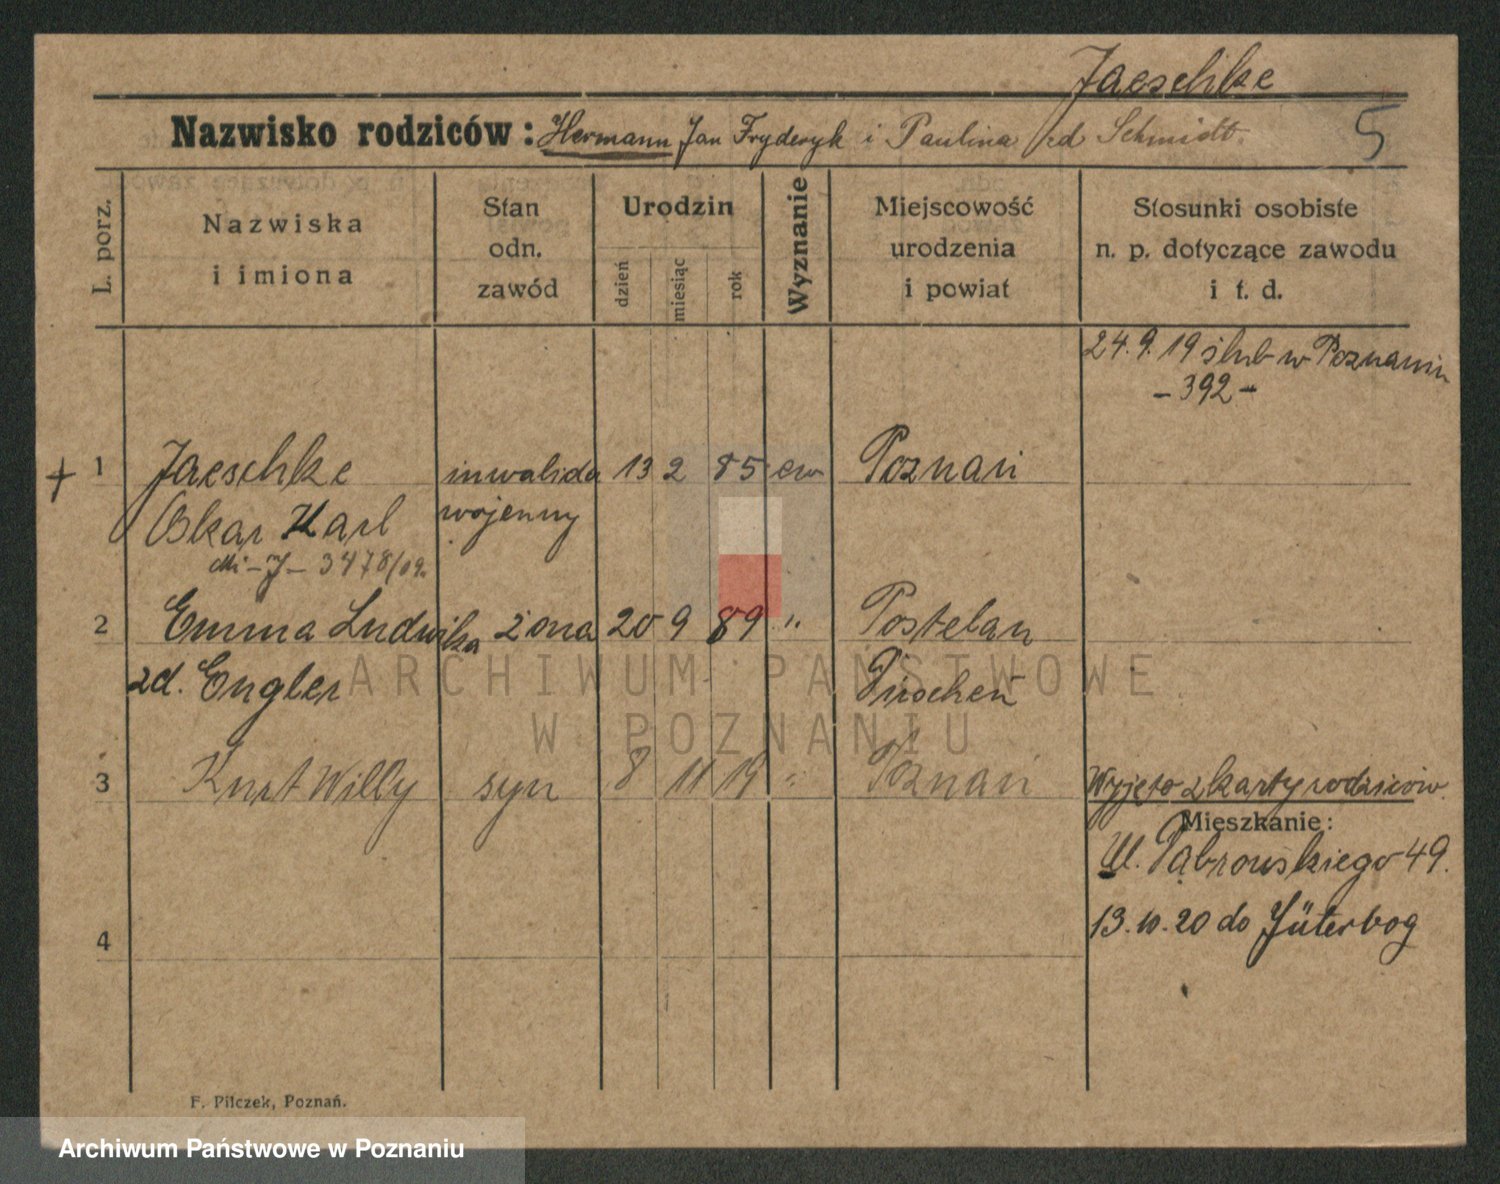 Jaeschke
Nazwisko rodziców: Hermann Jan Fryderyk i Paulina zd Schmidt. 5
L. porz.
Nazwiska
i imiona
Stan
odn.
zawód
Urodzin
dzień
miesiąc
rok
Wyznanie
Miejscowość
urodzenia
i powiat
Stosunki osobiste
n. p. dotyczące zawodu
i t. d.
24.9.19 ślub w Poznaniu
- 392 -
+ 1 Jaeschke inwalida 13 2 85 ew Poznań
Oskar Karl wojenny
3478/09.
2 Emma Ludwika żona 20 9 89 " Postelan
zd. Engler Pirschen
ARCHIWUM PAŃSTWOWE
W POZNANIU
3 Kurt Willy syn 8 11 19 " Poznań Wyjęto z karty rodziców.
Mieszkanie:
Ul. Dąbrowskiego 49.
13.10.20 do Jüterbog
4
F. Pilczek, Poznań.
Archiwum Państwowe w Poznaniu